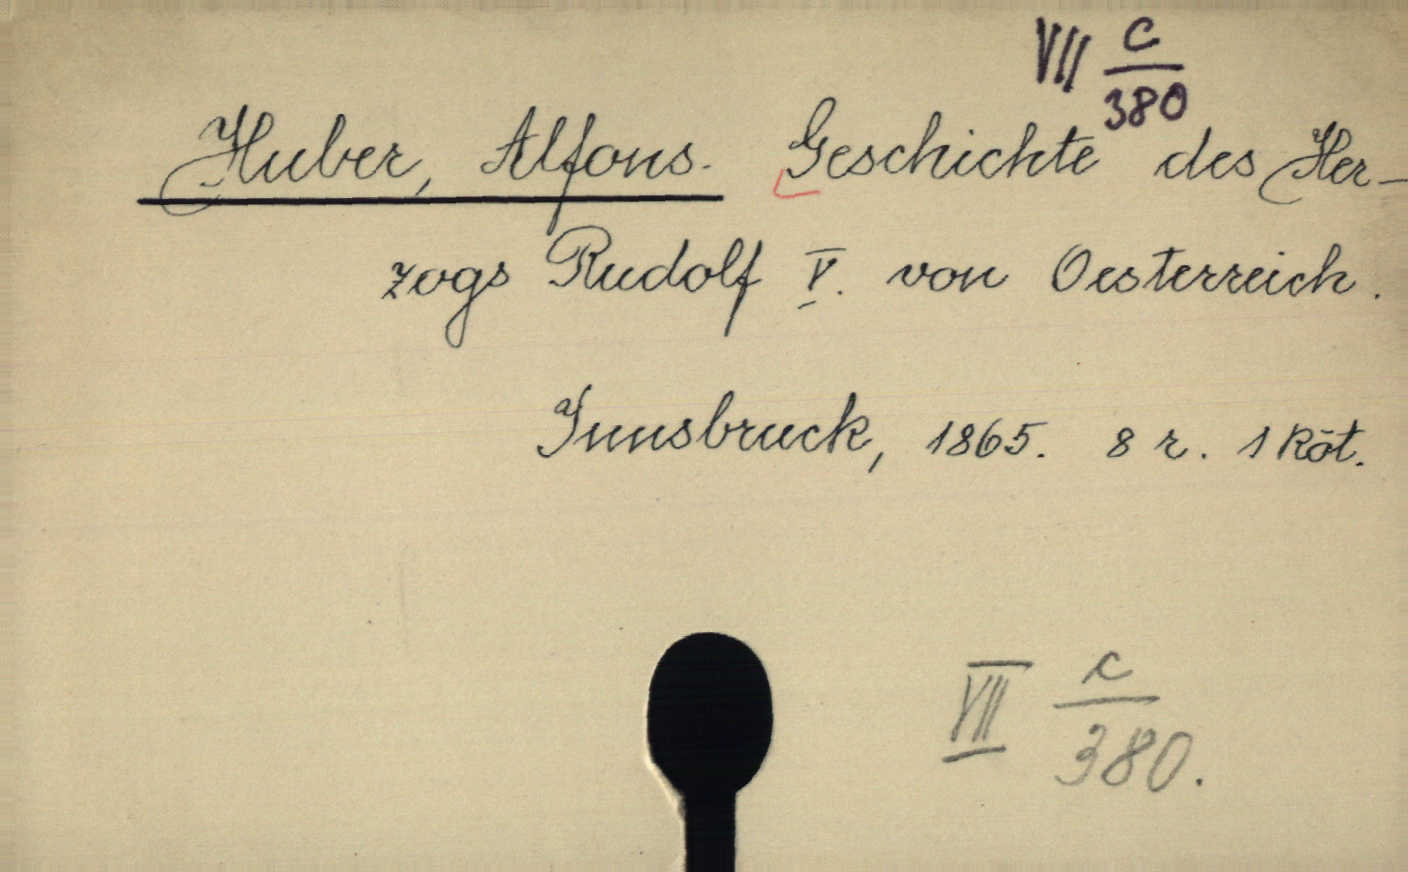 VII c/380
Huber, Alfons. Geschichte des Her-
zogs Rudolf V. von Oesterreich.
Innsbruck, 1865. 8 r. 1 Köt.
VII c/380.